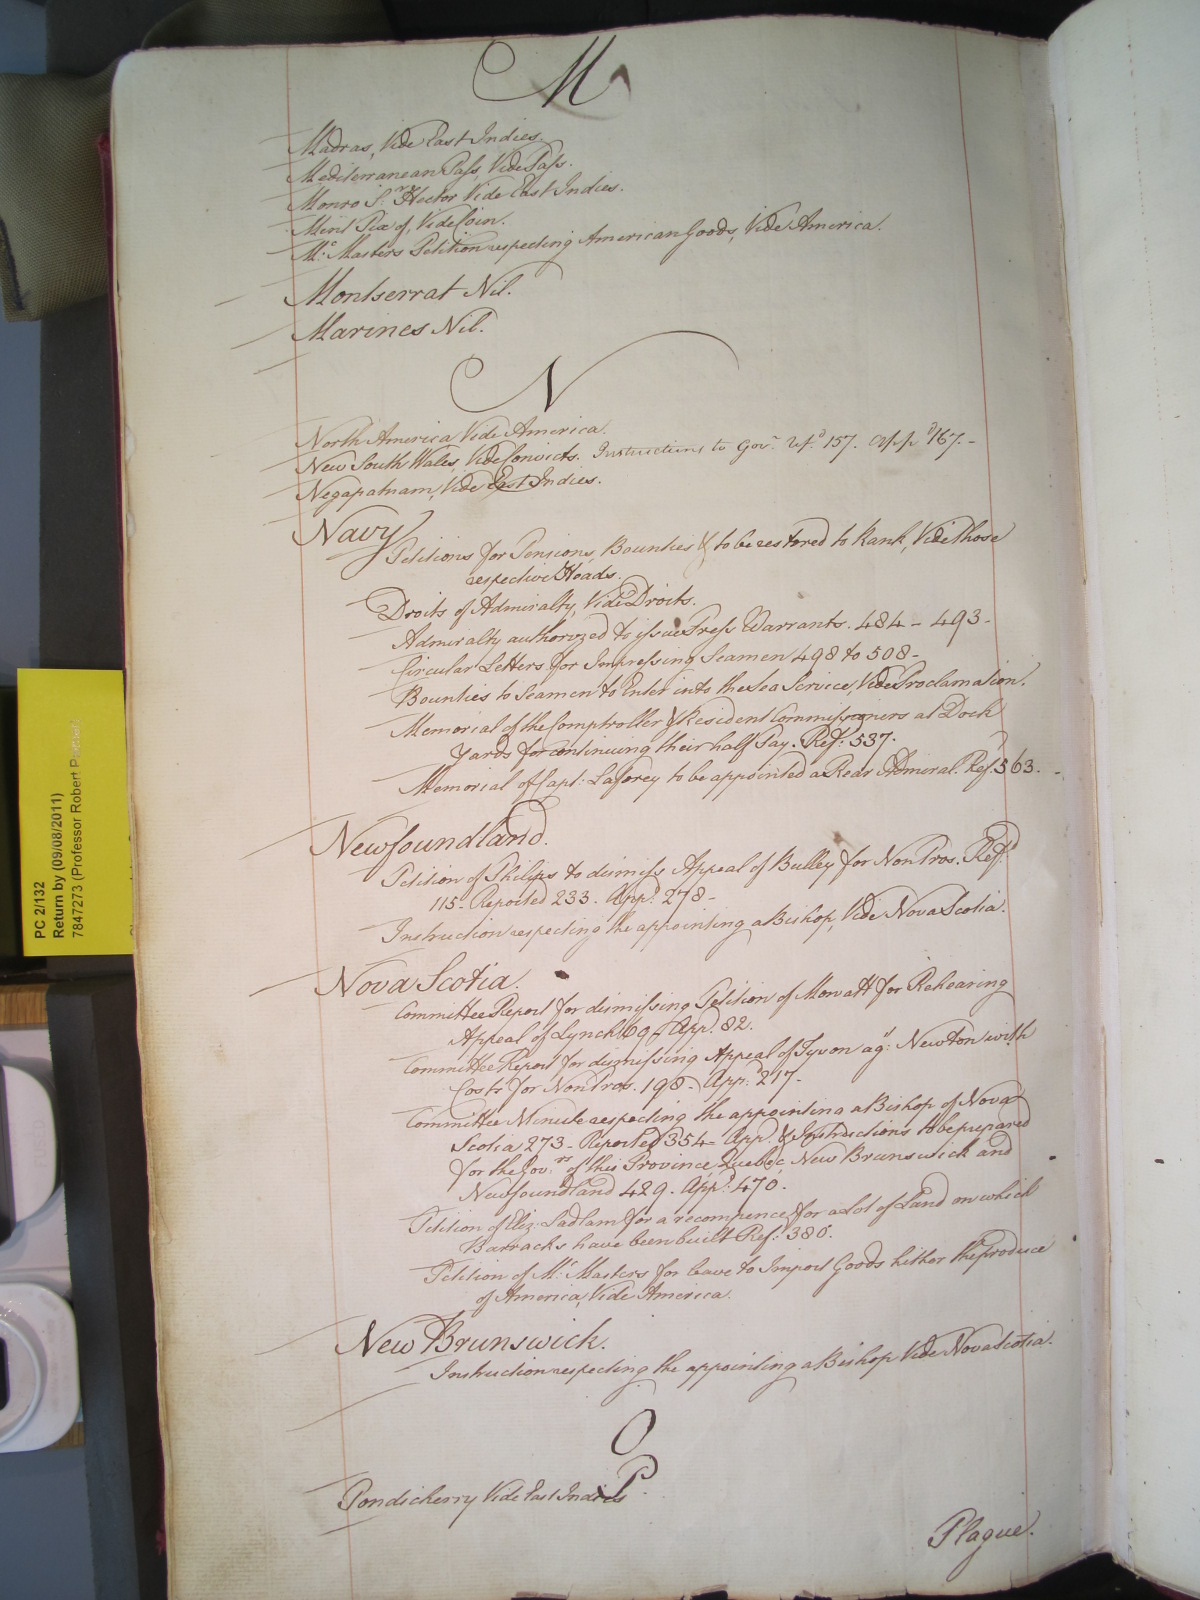 M
Madras, Vide East Indies.
Mediterranean Pass, Vide Pass.
Monro Sr. Hector Vide East Indies.
Mint Pix of, Vide Coin.
Mc. Masters Petition respecting American Goods, Vide America.
Montserrat Nil.
Marines Nil.
N
North America Vide America.
New South Wales, Vide Convicts. Instructions to Govr. 157. App'd 167.-
Negapatnam, Vide East Indies.
Navy
Petitions for Pensions, Bounties & to be restored to Rank, Vide those
respective Heads.
Droits of Admiralty, Vide Droits.
Admiralty authorized to issue Press Warrants. 484 - 493-
Circular Letters for Impressing Seamen 498 to 508-
Bounties to Seamen to Enter into the Sea Service, Vide Proclamation.
Memorial of the Comptroller & Resident Commissioners at Dock
Yards for continuing their half Pay. Refd. 537.
Memorial of Capt. Laforey to be appointed a Rear Admiral. Refd. 563.
Newfoundland.
Petition of Philips to dismiss Appeal of Bulley for Non Pros. Refd.
115- Reported 233. Appd. 278-
Instruction respecting the appointing a Bishop, Vide Nova Scotia.
Nova Scotia.
Committee Report for dismissing Petition of Mowatt for Rehearing
Appeal of Lynch 69- Appd. 82.
Committee Report for dismissing Appeal of Tyson agt. Newton with
Costs for Non Pros. 198- Appd. 217-
Committee Minute respecting the appointing a Bishop of Nova
Scotia 273- Reported 354- Appd. & Instructions to be prepared
for the Govrs. of this Province, Quebec, New Brunswick and
Newfoundland 429. Appd. 470.
Petition of Eliz: Ladlam for a recompence for a Lot of Land on which
Barracks have been built Refd. 380.
Petition of Mc. Masters for leave to Import Goods hither the produce
of America, Vide America.
New Brunswick.
Instruction respecting the appointing a Bishop Vide Nova Scotia.
O
P.
Pondicherry Vide East Indies
Plague.
PC 2/132
Return by (09/08/2011)
7847273 (Professor Robert